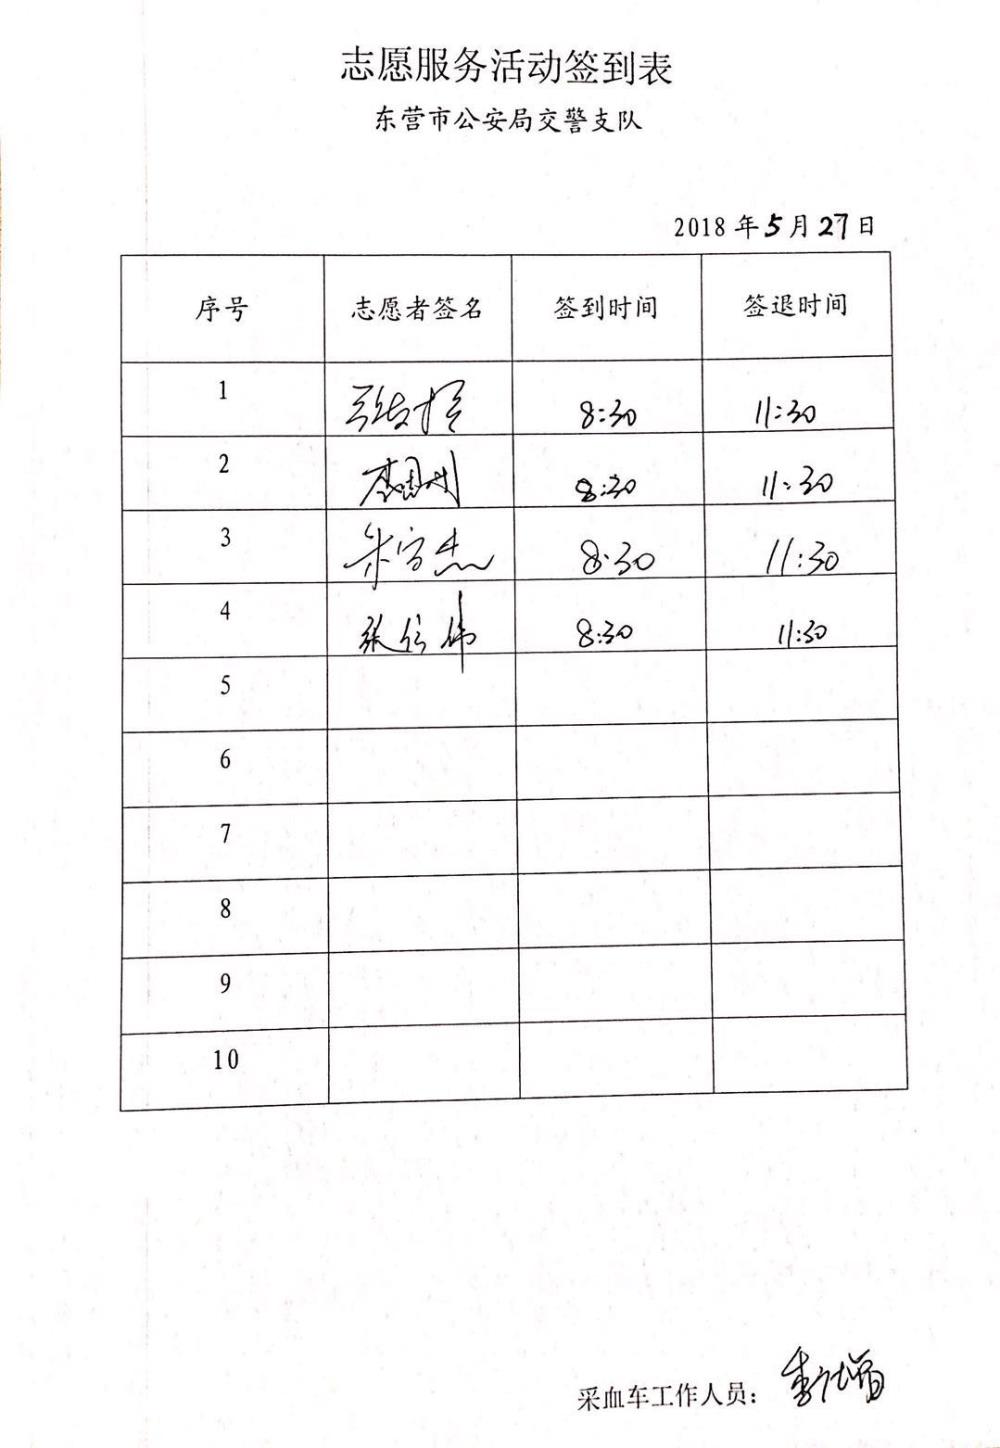 志愿服务活动签到表
东营市公安局交警支队
2018 年 5 月 27 日
序号 志愿者签名 签到时间 签退时间
1 8:30 11:30
2 8:30 11:30
3 朱守杰 8:30 11:30
4 张信伟 8:30 11:30
5
6
7
8
9
10
采血车工作人员: